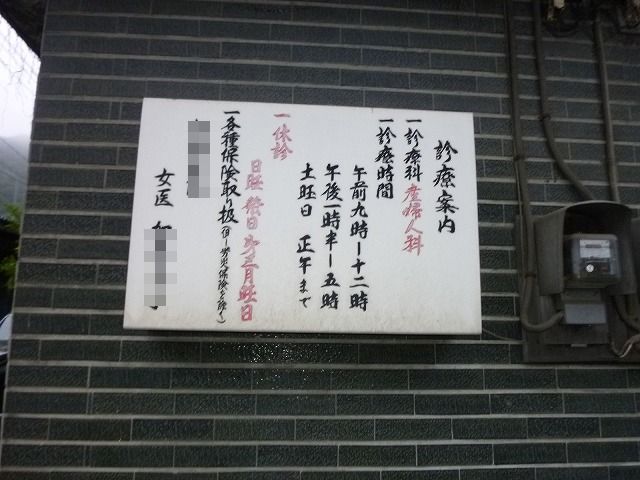 診療案内
一診療科 産婦人科
一診療時間
午前九時ー十二時
午後一時半ー五時
土旺日 正午まで
一休診
日旺 祭日 第三月旺日
一各種保険取り扱(但し労災保険を除く)
女医